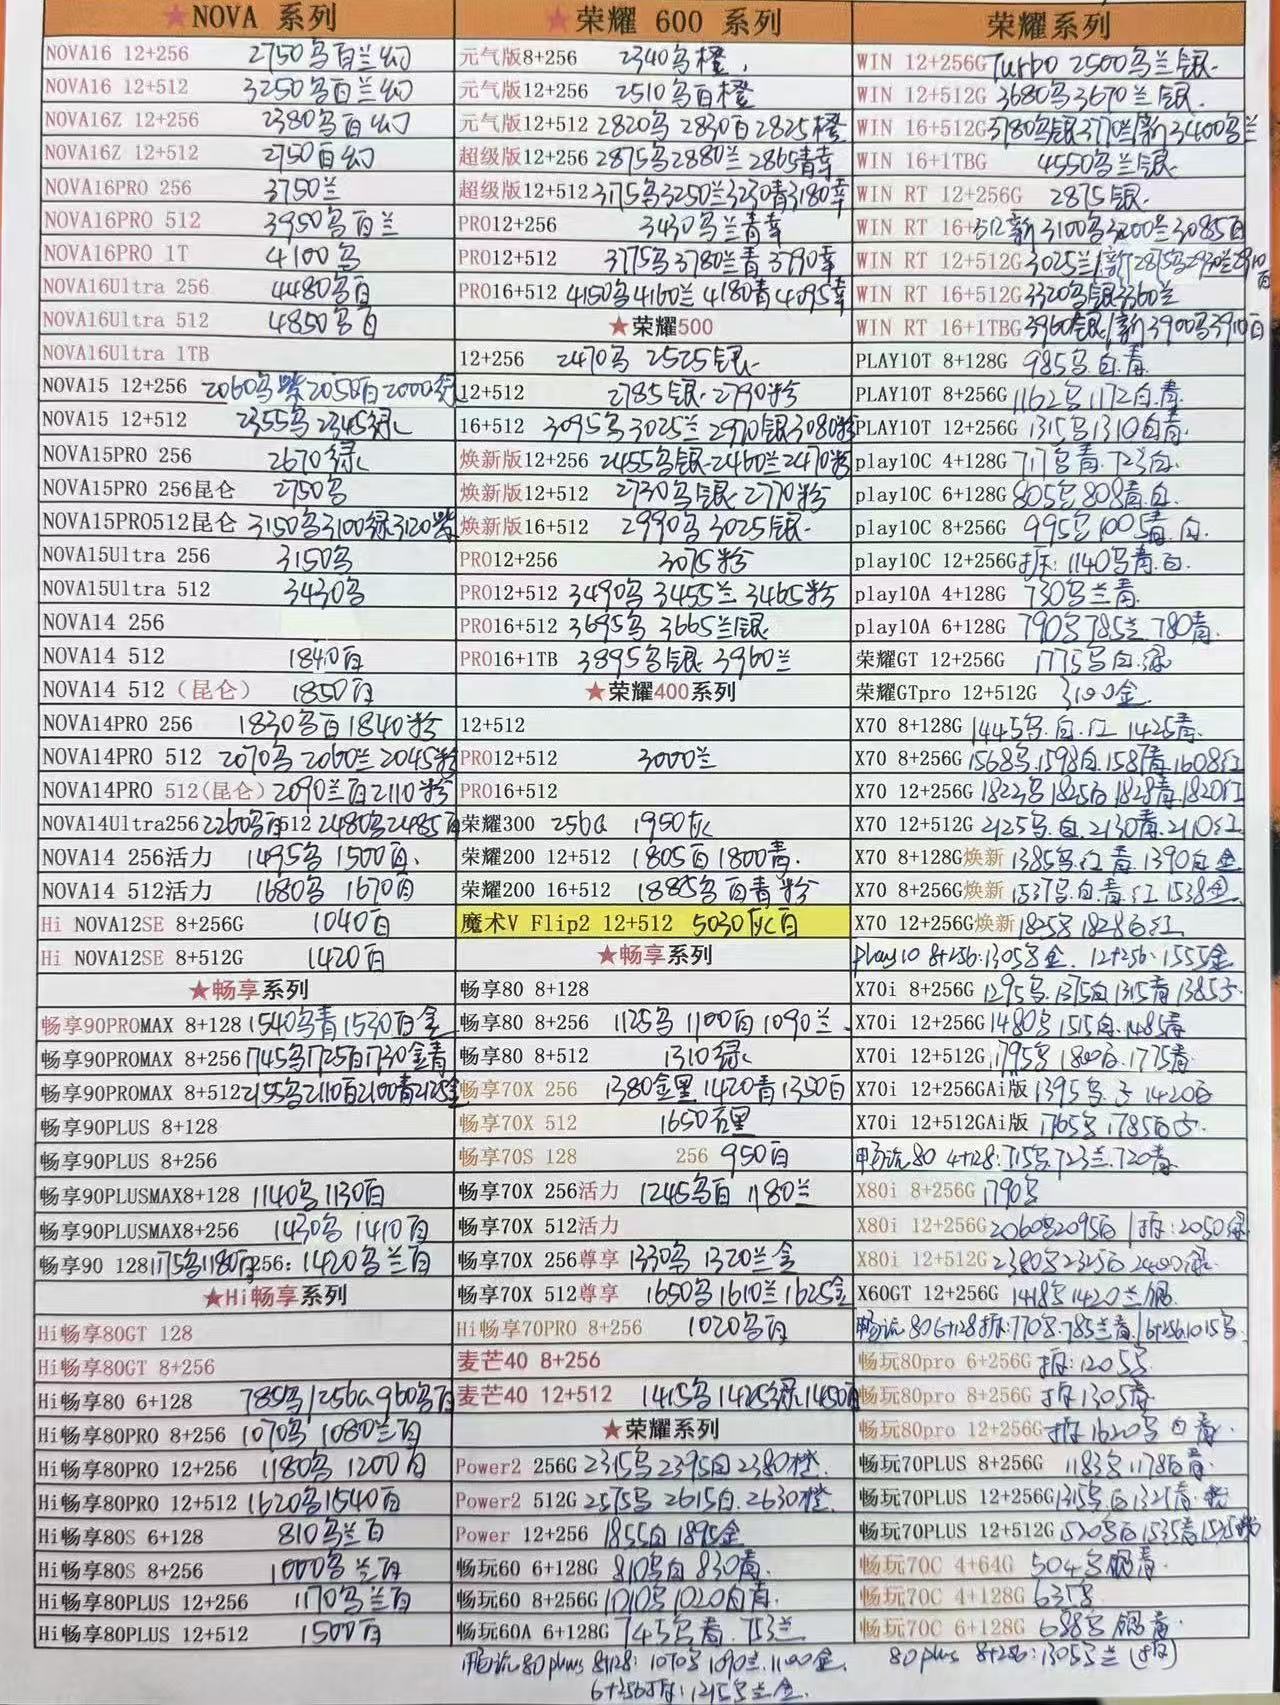 ★NOVA 系列
NOVA16 12+256 2750乌白兰幻
NOVA16 12+512 3250乌白兰幻
NOVA16Z 12+256 2380乌白幻
NOVA16Z 12+512 2750白幻
NOVA16PRO 256 3750兰
NOVA16PRO 512 3950乌白兰
NOVA16PRO 1T 4100乌
NOVA16Ultra 256 4480乌白
NOVA16Ultra 512 4850乌白
NOVA16Ultra 1TB
NOVA15 12+256 2060乌紫2050白2000绿
NOVA15 12+512 2355乌2345绿
NOVA15PRO 256 2670绿
NOVA15PRO 256昆仑 2750乌
NOVA15PRO512昆仑 3150乌3100绿3120紫
NOVA15Ultra 256 3150乌
NOVA15Ultra 512 3430乌
NOVA14 256
NOVA14 512 1840白
NOVA14 512（昆仑） 1850白
NOVA14PRO 256 1830乌白1840粉
NOVA14PRO 512 2070乌2060兰2045粉
NOVA14PRO 512(昆仑) 2090兰白2110粉
NOVA14Ultra256 2260乌白512 2480乌2485白
NOVA14 256活力 1495乌1500白
NOVA14 512活力 1680乌 1670白
Hi NOVA12SE 8+256G 1040白
Hi NOVA12SE 8+512G 1420白
★畅享系列
畅享90PROMAX 8+128 1540乌青1530白金
畅享90PROMAX 8+256 1745乌1725白1730金青
畅享90PROMAX 8+512 2155乌2110白2100青2125金
畅享90PLUS 8+128
畅享90PLUS 8+256
畅享90PLUSMAX8+128 1140乌1130白
畅享90PLUSMAX8+256 1430乌 1410白
畅享90 128 1175乌1180白256: 1420乌兰白
★Hi畅享系列
Hi畅享80GT 128
Hi畅享80GT 8+256
Hi畅享80 6+128 785乌/256G960乌白
Hi畅享80PRO 8+256 1070乌1080兰白
Hi畅享80PRO 12+256 1180乌 1200白
Hi畅享80PRO 12+512 1620乌1540白
Hi畅享80S 6+128 810乌兰白
Hi畅享80S 8+256 1000乌兰白
Hi畅享80PLUS 12+256 1170乌兰白
Hi畅享80PLUS 12+512 1500白
★荣耀 600 系列
元气版8+256 2340乌橙
元气版12+256 2510乌白橙
元气版12+512 2820乌 2830白2825橙
超级版12+256 2875乌2880兰2865青幸
超级版12+512 3175乌3250兰3230青3180幸
PRO12+256 3430乌兰青幸
PRO12+512 3775乌3780兰青3790幸
PRO16+512 4150乌4160兰4180青4095幸
★荣耀500
12+256 2470乌 2525银
12+512 2785银 2790粉
16+512 3095乌3025兰2970银3080粉
焕新版12+256 2455乌银2460兰2470粉
焕新版12+512 2730乌银2770粉
焕新版16+512 2990乌3025银
PRO12+256 3075粉
PRO12+512 3490乌3455兰3465粉
PRO16+512 3695乌 3665兰银
PRO16+1TB 3895乌银3960兰
★荣耀400系列
12+512
PRO12+512 3000兰
PRO16+512
荣耀300 256G 1950灰
荣耀200 12+512 1805白1800青
荣耀200 16+512 1885乌白青粉
魔术V Flip2 12+512 5030灰白
★畅享系列
畅享80 8+128
畅享80 8+256 1125乌1100白1090兰
畅享80 8+512 1310绿
畅享70X 256 1380金黑1420青1350白
畅享70X 512 1650白黑
畅享70S 128 256 950白
畅享70X 256活力 1245乌白 1180兰
畅享70X 512活力
畅享70X 256尊享 1330乌 1320兰金
畅享70X 512尊享 1650乌1610兰1625金
Hi畅享70PRO 8+256 1020乌白
麦芒40 8+256
麦芒40 12+512 1415乌1425绿1450白
★荣耀系列
Power2 256G 2315乌2395白2380橙
Power2 512G 2575乌2615白2630橙
Power 12+256 1855白1895金
畅玩60 6+128G 810乌白830青
畅玩60 8+256G 1010乌1020白青
畅玩60A 6+128G 745乌青.753兰
畅玩80plus 8+128: 1070乌1090兰.1100金.
6+256拆: 1215乌兰金.
荣耀系列
WIN 12+256G Turbo 2500乌兰银
WIN 12+512G 3680乌3670兰银
WIN 16+512G 3780乌银3770兰/新3400乌兰
WIN 16+1TBG 4550乌兰银
WIN RT 12+256G 2875银
WIN RT 16+512新3100乌3200兰3085白
WIN RT 12+512G 3025兰/新2875乌2930兰2910白
WIN RT 16+512G 3320乌银3360兰
WIN RT 16+1TBG 3960银/新3900乌3910白
PLAY10T 8+128G 985乌.白.青
PLAY10T 8+256G 1162乌1172白.青
PLAY10T 12+256G 1315乌1310白青
play10C 4+128G 717乌青.723白
play10C 6+128G 805乌808青.白
play10C 8+256G 995乌1005青.白
play10C 12+256G拆: 1140乌青.白
play10A 4+128G 730乌兰青
play10A 6+128G 790乌785兰780青
荣耀GT 12+256G 1775乌白.绿
荣耀GTpro 12+512G 3100金
X70 8+128G 1445乌.白.红 1425青
X70 8+256G 1568乌.1598白.1587青.1608红
X70 12+256G 1822乌1825白1828青.1820红
X70 12+512G 2125乌.白.2130青.2110红
X70 8+128G焕新 1385乌.红 青.1390白金
X70 8+256G焕新 1537乌.白.青.红1538金
X70 12+256G焕新 1825乌1828白红
play10 8+256:1305乌金. 12+256: 1555金
X70i 8+256G 1295乌.1375白1315青1385紫
X70i 12+256G 1480乌1515白.1485青
X70i 12+512G 1795乌1800白.1775青
X70i 12+256GAi版 1395乌.紫1420白
X70i 12+512GAi版 1765乌1785白紫
畅玩80 4+128:715乌.723兰.720青
X80i 8+256G 1790乌
X80i 12+256G 2060乌2095白/拆:2050绿
X80i 12+512G 2380乌2325白2400绿
X60GT 12+256G 1418乌1420兰银
畅玩80 6+128拆:770乌.785兰青/6+256:1015乌
畅玩80pro 6+256G 拆:1205乌
畅玩80pro 8+256G 拆1305青
畅玩80pro 12+256G拆1620乌白青
畅玩70PLUS 8+256G 1183乌1178白青
畅玩70PLUS 12+256G 1315乌.白1321青.紫
畅玩70PLUS 12+512G 1520乌白1535青1525紫
畅玩70C 4+64G 504乌银青
畅玩70C 4+128G 635乌
畅玩70C 6+128G 688乌银青
80plus 8+256:1305乌兰(拆)